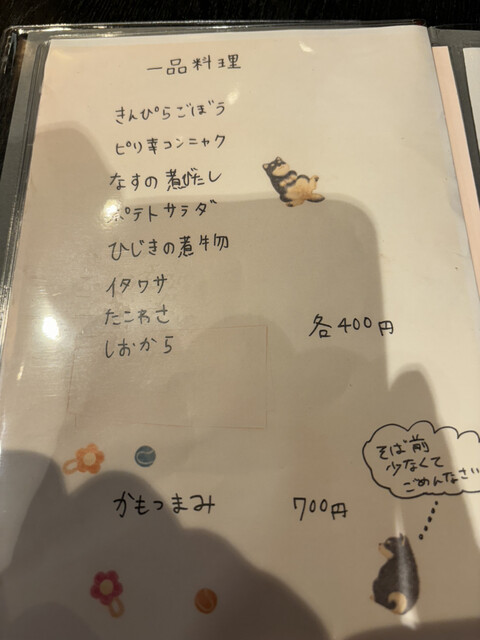 一品料理
きんぴらごぼう
ピリ辛コンニャク
なすの煮びたし
ポテトサラダ
ひじきの煮物
イタワサ
たこわさ
しおから
各400円
そば前
少なくて
ごめんなさい
かもつまみ 700円